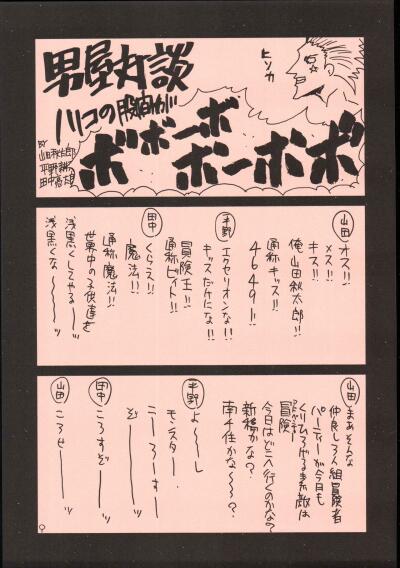 男屋対談
ハコの股間が
ボボーボ
ボーボボ
ヒソカ
BY
山田秋太郎
平野耕太
田中
山田
オス!!
メス!!
キス!!
俺山田秋太郎!!
通称キッス!!
4649!!
平野
エクセリオンな!!
キッスだけにな!!
冒険王!!
通称ビィト!!
田中
くらえ!!
魔法!!
通称魔法!!
世界中の子供達を
浅黒くしてやる〜〜ッ
浅黒くな〜〜〜ッ
山田
まあそんな
仲良し3人組冒険者
パーティーが今日も
くりひろげる素敵な
冒険
アドベンチャー
今日はどこへ行くのかな?
新橋かな?
南千住かな〜〜?
平野
よ〜〜し
モンスター
こーろーすー
ぞー
田中
ころすぞーーッ
山田
ころせーーッ